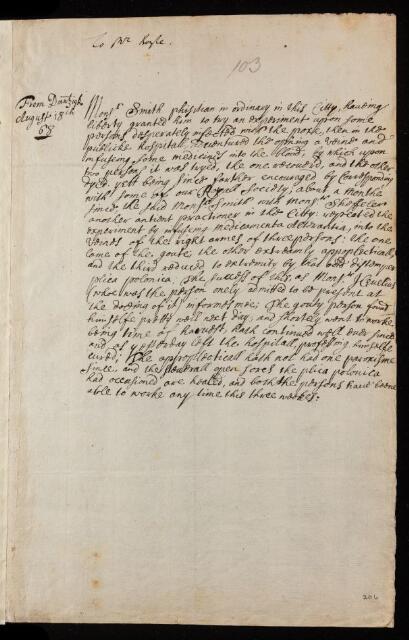 to Mr Boyle.
103
From Dantzigk
August 18th
68
Monsr Smith phisitian in ordinary in this Citty, haveing
liberty granted him to try an experiment upon some
persons desperately infected with the poxe, then in the
publike hospitall, adventured the opening a veine and
infusing some medicines into the blood, by which upon
two persons it was tryed, the one recovered, and the other
dyed yett being since farther encouraged by Corresponding
with some of our Royall Society, about a monthe
since the said Monsr Smith with Monsr Scheffeler
another antient practioner in this Citty: repeated the
experiment by infusing medicamenta Alterantia, into the
veines of the right armes of three persons: the one
lame of the goute; the other extreamly appoplecticall
and the third reduced to extremity by that odd distemper
plica polonica. The success of this as Monsr Hevelius
(who was the person onely admitted to be present at
the dooing of it) informes mee; The gouty person found
himselfe pretty well next day, and shortly went to worke
being time of harvest hath continued well ever since
and as yesterday left the hospitall, professing himselfe
cured; The appoplecticall hath not had one paroxisme
since, and the severall open sores the plica polonica
had occasioned are healed, and both the persons have beene
able to worke any time this three weekes.
206